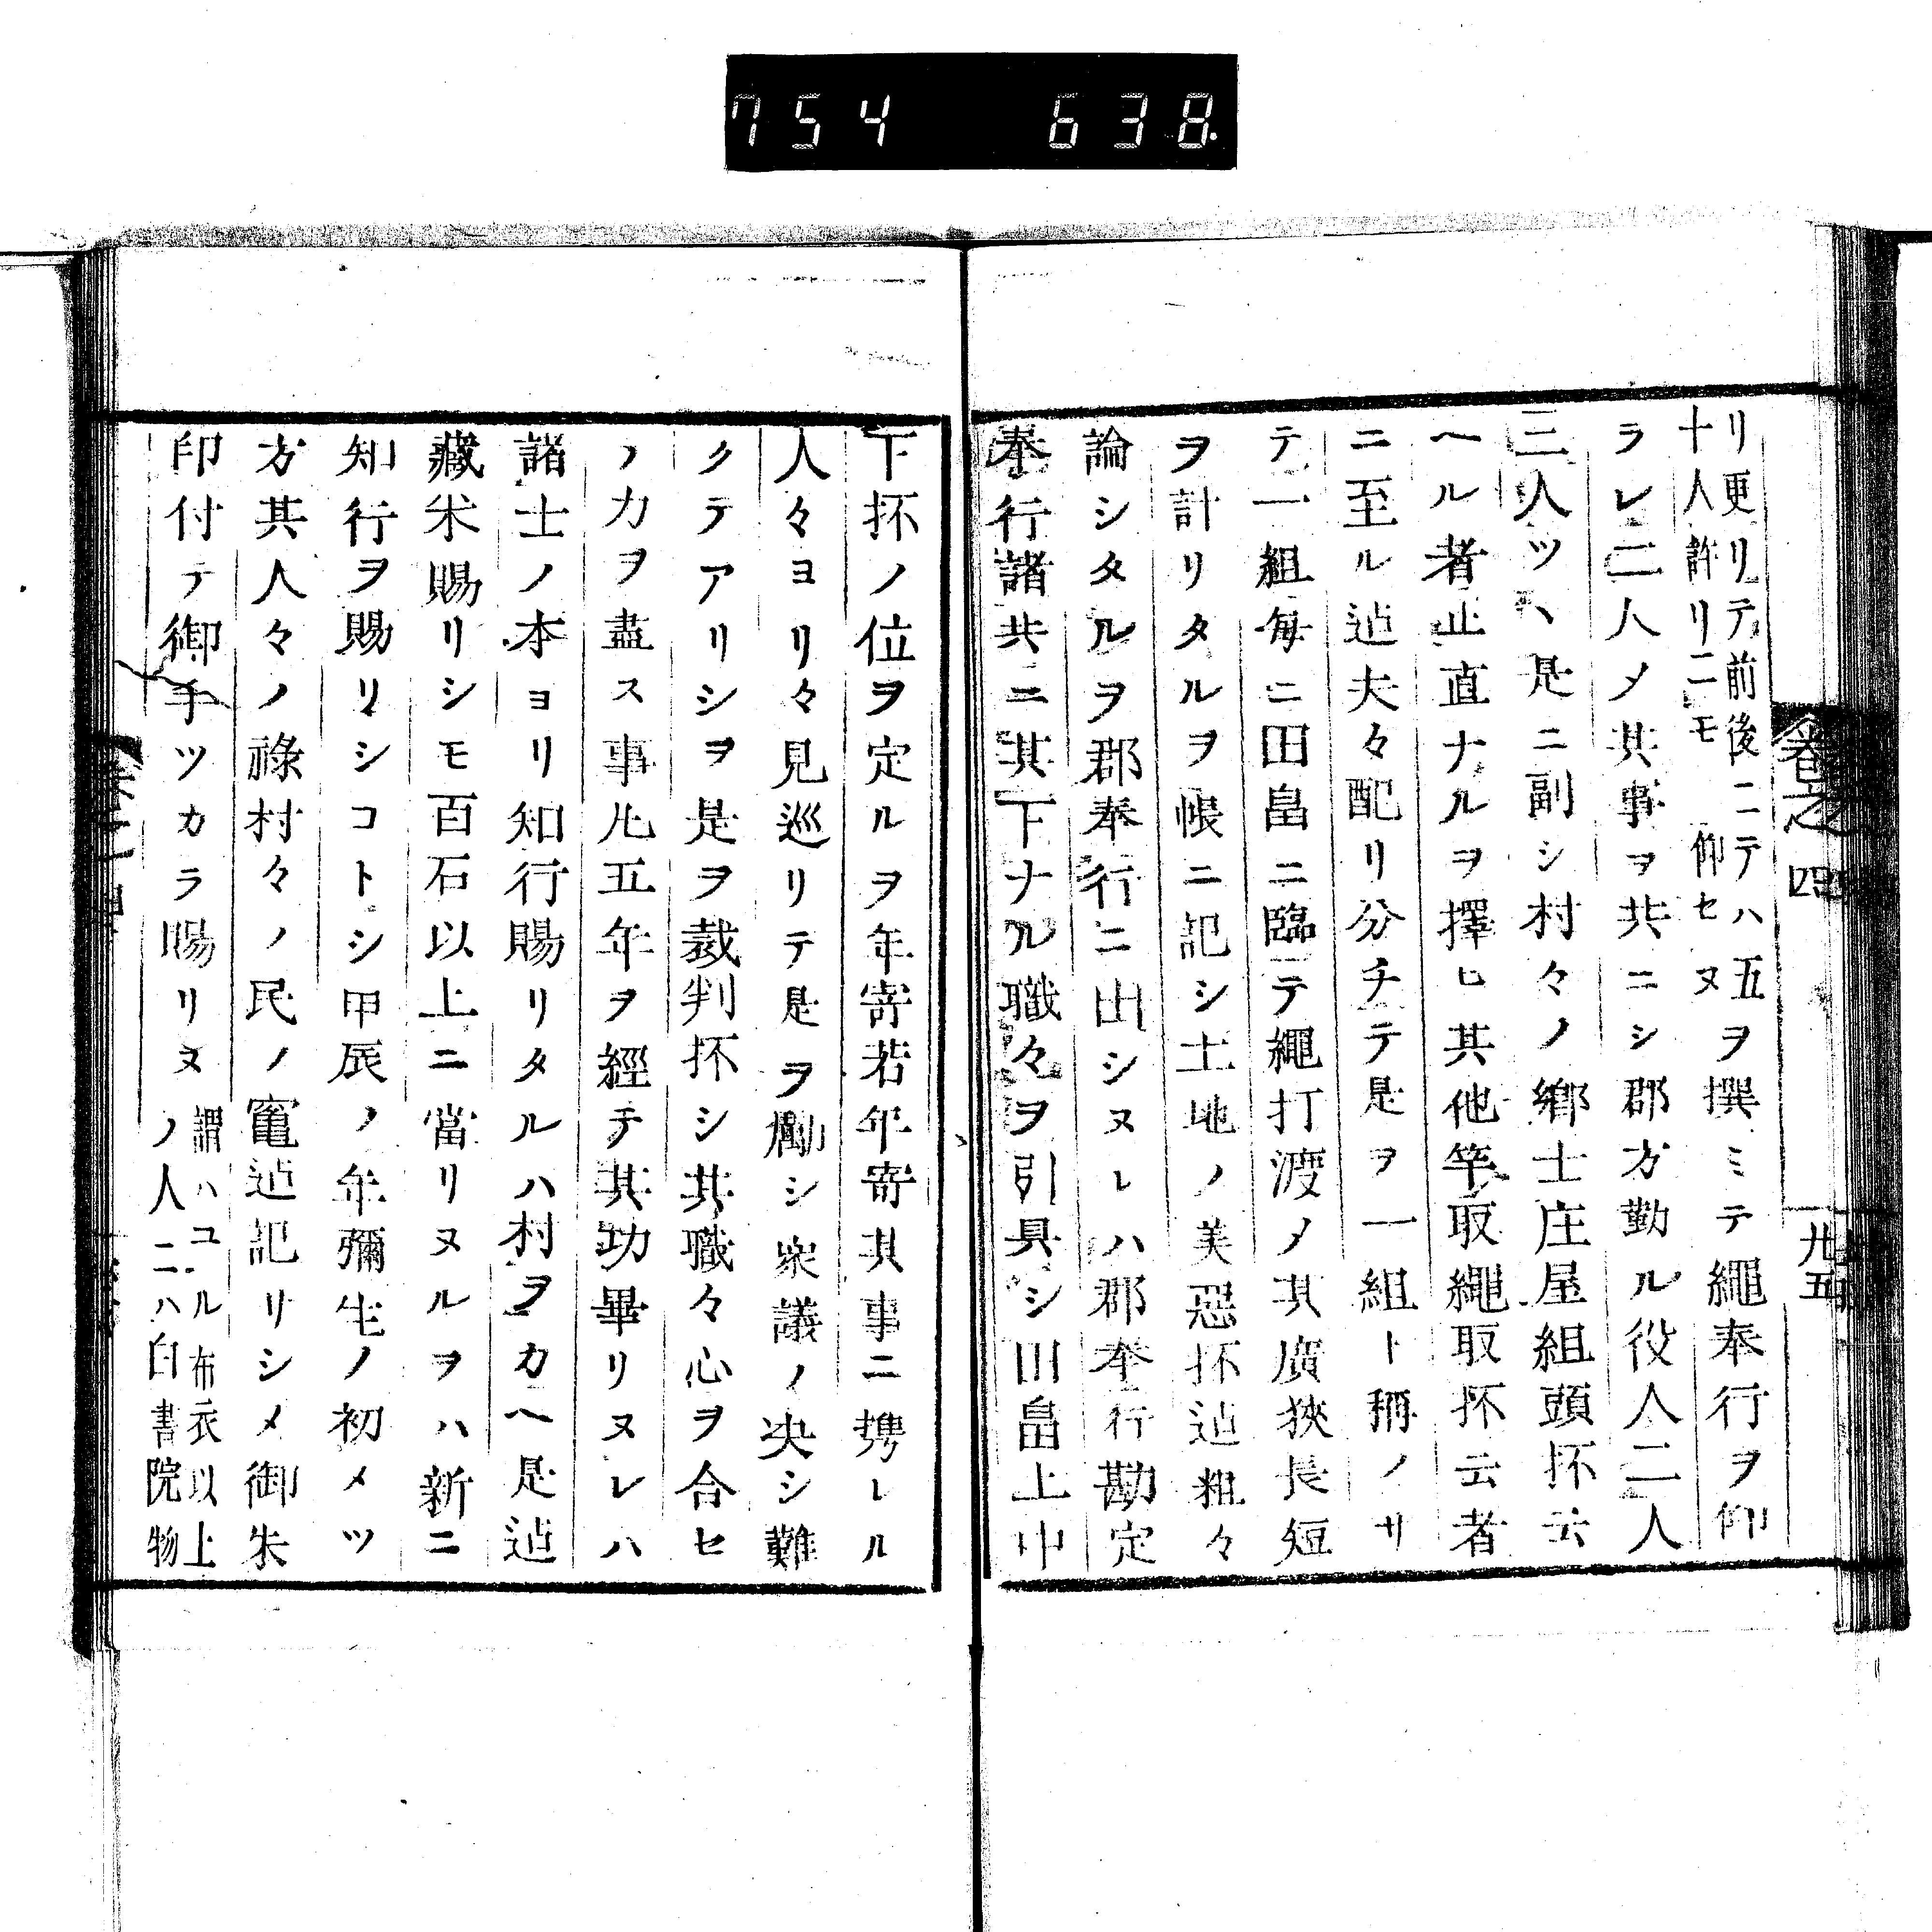 754 638
卷之四 廿五
リ更リテ前後ニテハ五ヲ撰ミテ繩奉行ヲ仰
十人許リニモ 仰セヌ
ラレ二人メ其事ヲ共ニシ郡方勤ル役人二人
三人ツヽ是ニ副シ村々ノ鄉士庄屋組頭抔云
ヘル者止直ナルヲ擇ヒ其他竿取繩取抔云者
ニ至ル迠夫々配リ分チテ是ヲ一組ト稱ノサ
テ一組毎ニ田畠ニ臨テ繩打渡メ其廣狹長短
ヲ計リタルヲ帳ニ記シ土地ノ美惡抔迠粗々
論シタルヲ郡奉行ニ出シヌレハ郡奉行勘定
奉行諸共ニ其下ナル職々ヲ引具シ田畠上中
下抔ノ位ヲ定ルヲ年寄若年寄其事ニ携レル
人々ヨリ々見巡リテ是ヲ勵シ衆議ノ決シ難
クテアリシヲ是ヲ裁判抔シ其職々心ヲ合セ
ノ力ヲ盡ス事凡五年ヲ經テ其功畢リヌレハ
諸士ノ本ヨリ知行賜リタルハ村ヲカヘ是迠
藏米賜リシモ百石以上ニ當リヌルヲハ新ニ
知行ヲ賜リシコトシ甲辰ノ年彌生ノ初メツ
方其人々ノ祿村々ノ民ノ竃迠記リシメ御朱
印付テ御手ツカラ賜リヌ 謂ハユル布衣以上
ノ人ニハ白書院物